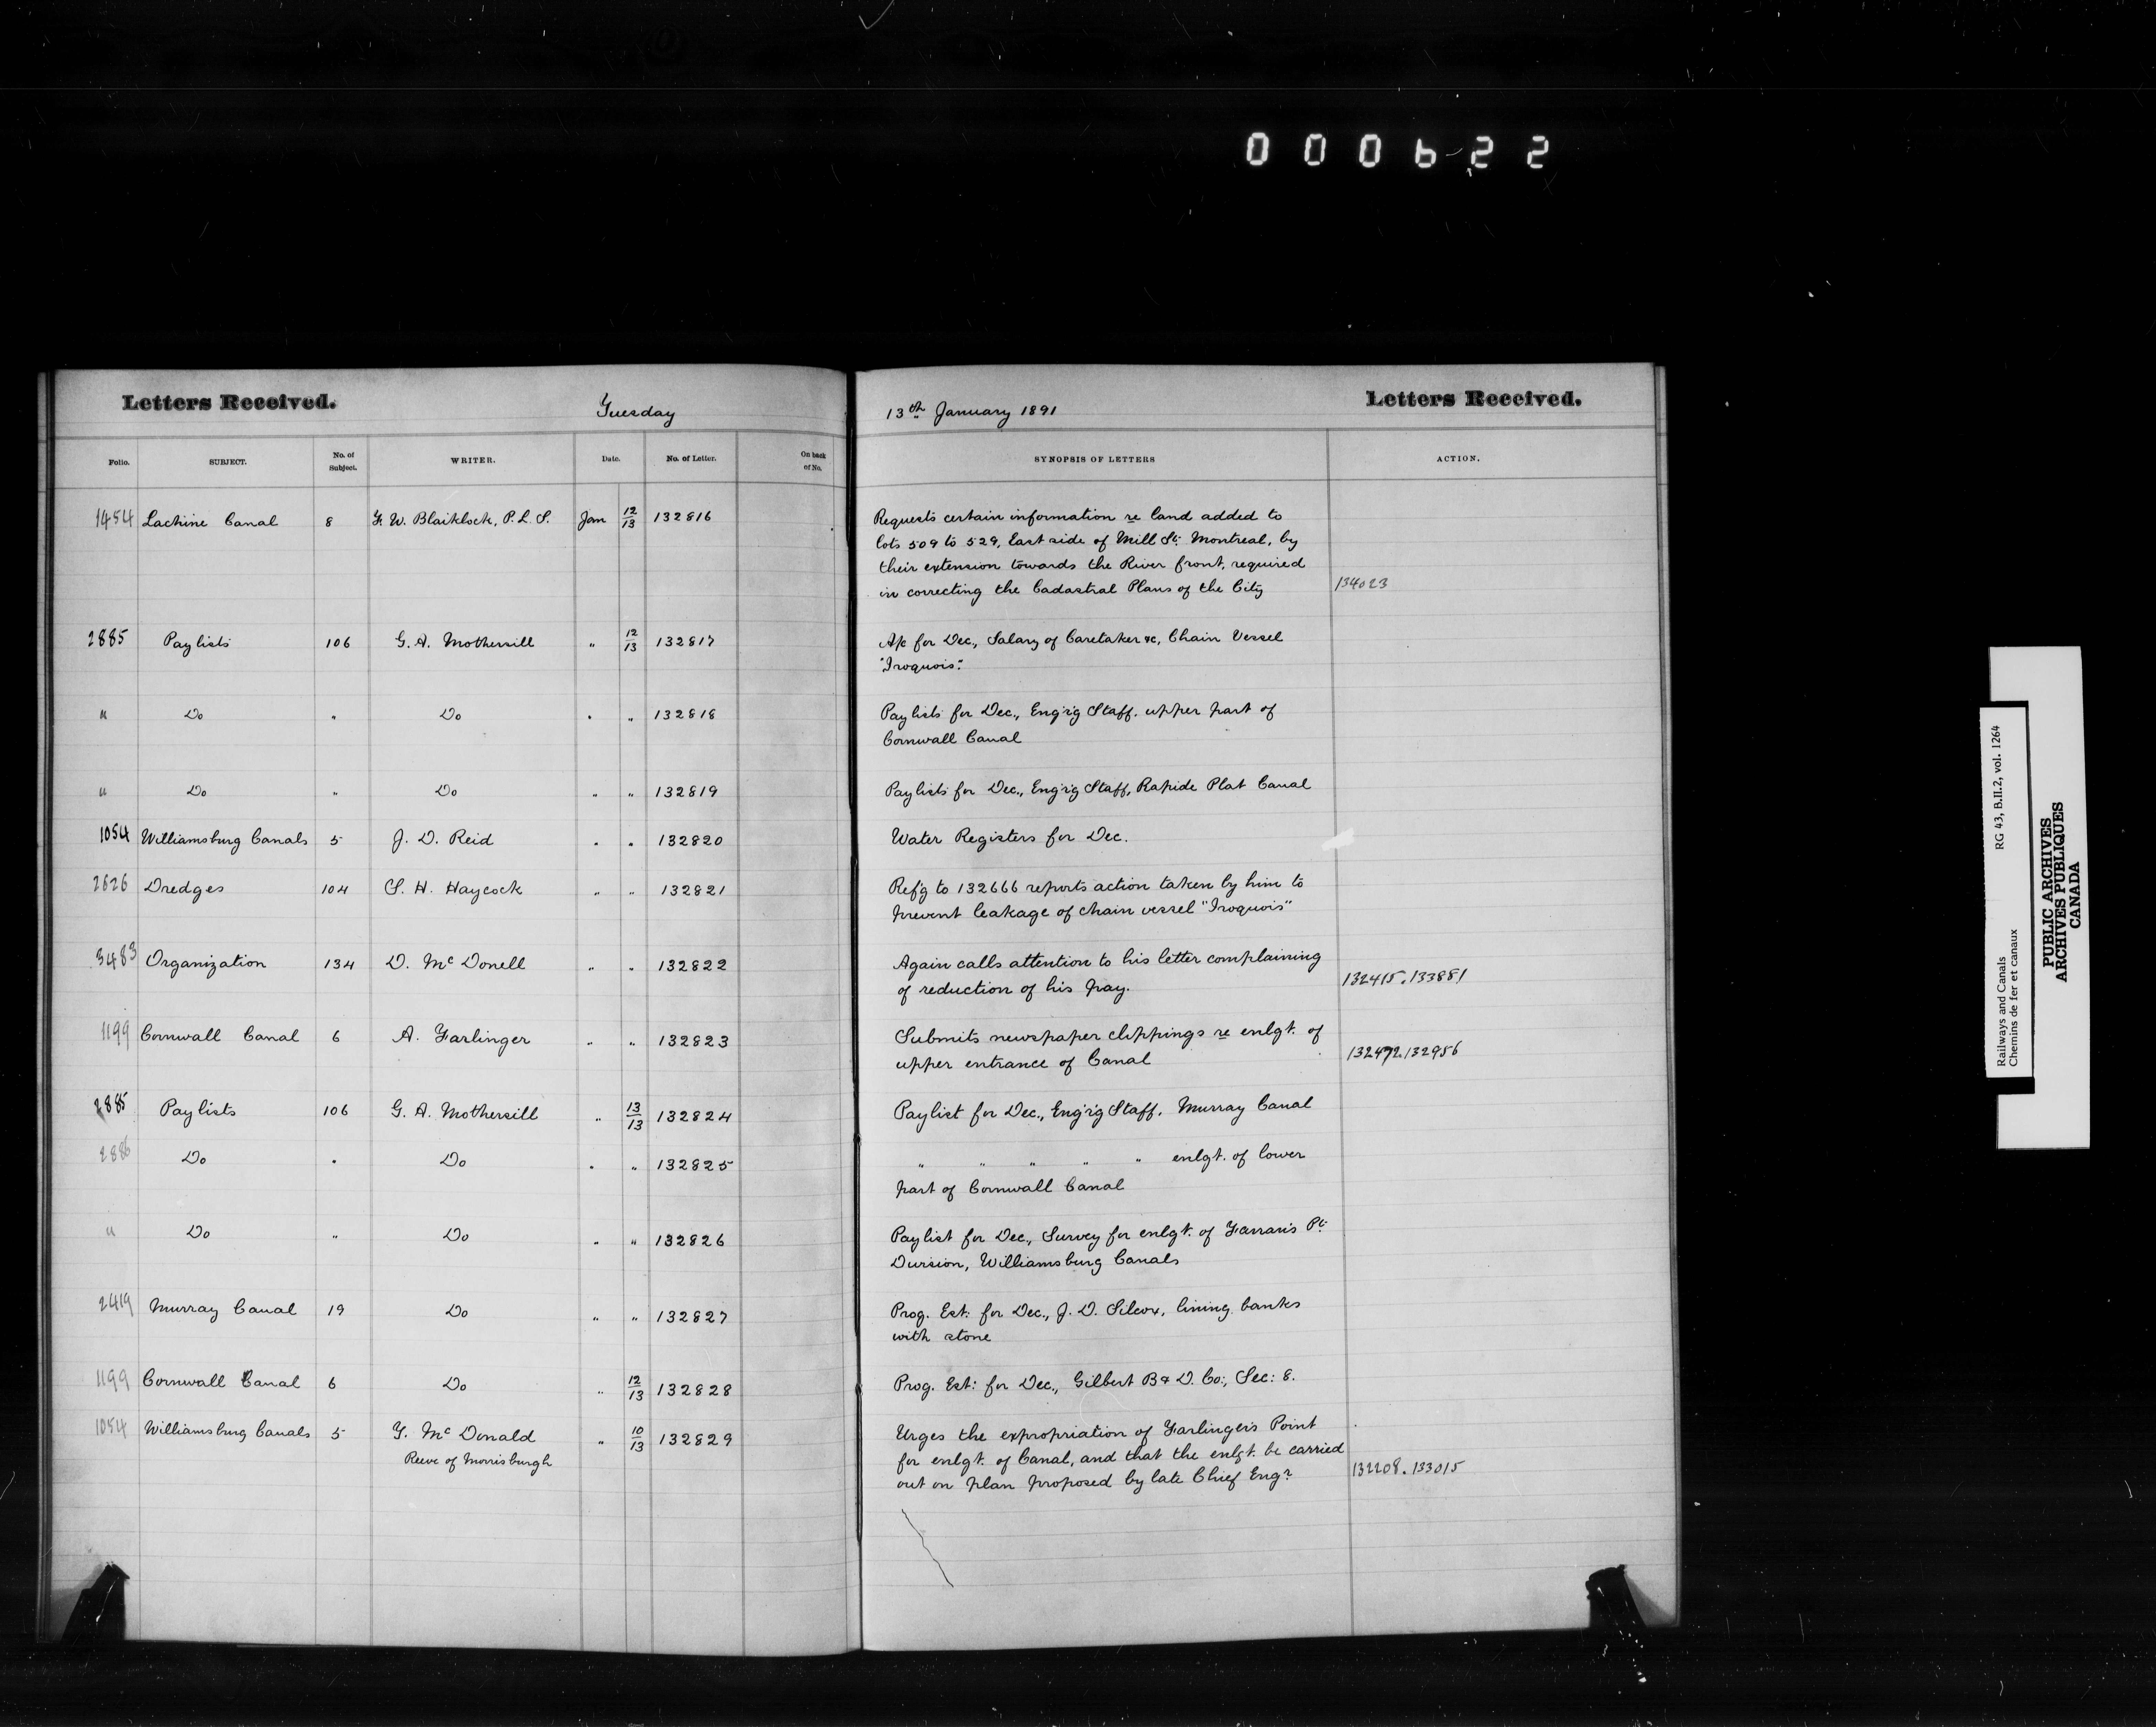 000622
Letters Received.
Tuesday
13th January 1891
Letters Received.
Folio. SUBJECT. No. of Subject. WRITER. Date. No. of Letter. On back of No. SYNOPSIS OF LETTERS ACTION.
1454 Lachine Canal 8 F. W. Blaiklock, P. L. S. Jan 12/13 132816 Requests certain information re land added to
lots 509 to 529, East side of Mill St: Montreal, by
their extension towards the River front, required
in correcting the Cadastral Plans of the City 134023
2885 Paylists 106 G. A. Mothersill " 12/13 132817 A/c for Dec., Salary of Caretaker &c, Chain Vessel
"Iroquois".
" Do " Do " " 132818 Paylists for Dec., Eng'r'g Staff, upper part of
Cornwall Canal
" Do " Do " " 132819 Paylists for Dec., Eng'r'g Staff, Rapide Plat Canal
1054 Williamsburg Canals 5 J. D. Reid " " 132820 Water Registers for Dec.
2626 Dredges 104 S. H. Haycock " " 132821 Ref'g to 132666 reports action taken by him to
prevent leakage of chain vessel "Iroquois"
3483 Organization 134 D. McDonell " " 132822 Again calls attention to his letter complaining
of reduction of his pay. 132415.133881
1199 Cornwall Canal 6 A. Farlinger " " 132823 Submits newspaper clippings re enlgt. of
upper entrance of Canal 132472.132956
2885 Paylists 106 G. A. Mothersill " 13/13 132824 Paylist for Dec., Eng'r'g Staff, Murray Canal
2886 Do " Do " " 132825 " " " " " enlgt. of lower
part of Cornwall Canal
" Do " Do " " 132826 Paylist for Dec., Survey for enlgt. of Farran's Pt:
Division, Williamsburg Canals
2419 Murray Canal 19 Do " " 132827 Prog. Est: for Dec., J. D. Silcox, lining banks
with stone
1199 Cornwall Canal 6 Do " 12/13 132828 Prog. Est: for Dec., Gilbert B & D. Co:, Sec: 8.
1054 Williamsburg Canals 5 F. McDonald " 10/13 132829 Urges the expropriation of Farlinger's Point
Reeve of Morrisburgh for enlgt. of Canal, and that the enlgt. be carried
out on plan proposed by late Chief Engr 132208.133015
Railways and Canals RG 43, B.II.2, vol. 1264
Chemins de fer et canaux
PUBLIC ARCHIVES
ARCHIVES PUBLIQUES
CANADA